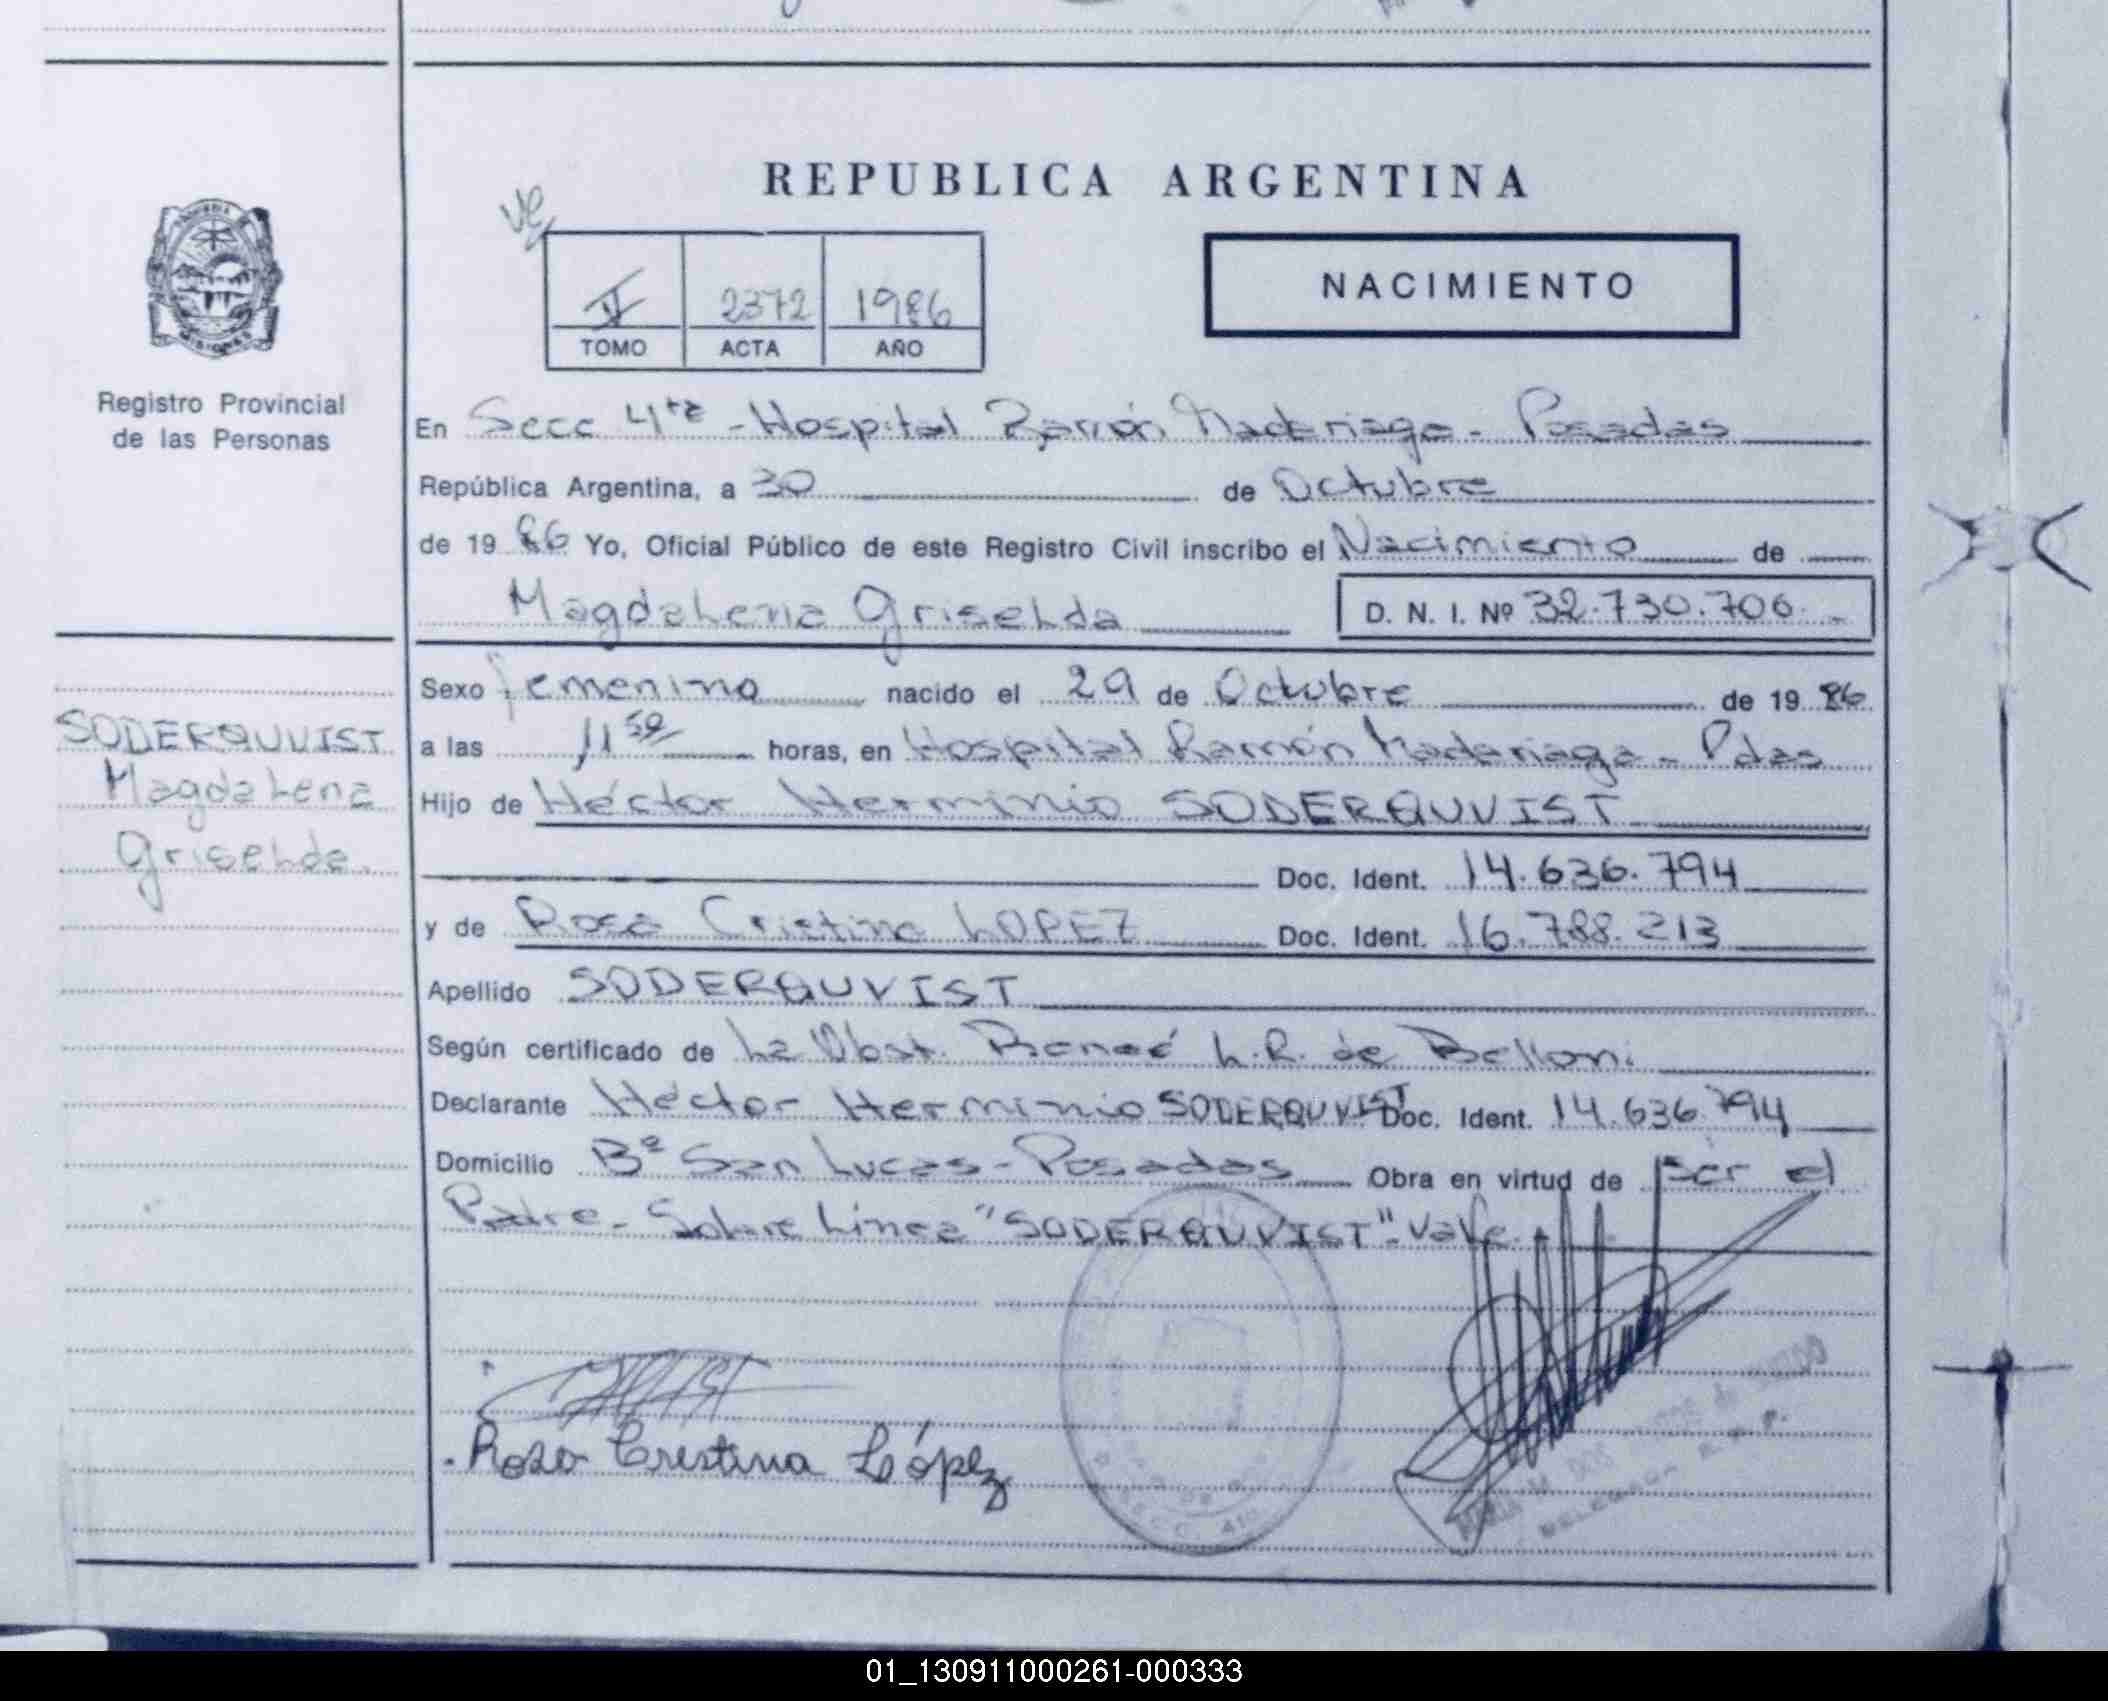 REPUBLICA ARGENTINA
NACIMIENTO
II 2372 1986
TOMO ACTA AÑO
Registro Provincial
de las Personas
En Secc 4ta - Hospital Ramón Madariaga - Posadas
República Argentina, a 30 de Octubre
de 1986 Yo, Oficial Público de este Registro Civil inscribo el Nacimiento de
Magdalena Griselda D. N. I. Nº 32.730.706.
Sexo femenino nacido el 29 de Octubre de 1986
SODERQUVIST
Magdalena
Griselda.
a las 11 50 horas, en Hospital Ramón Madariaga - Pdas
Hijo de Héctor Herminio SODERQUVIST
Doc. Ident. 14.636.794
y de Rosa Cristina LOPEZ Doc. Ident. 16.788.213
Apellido SODERQUVIST
Según certificado de La Obst. Reneé L.R. de Belloni.
Declarante Héctor Herminio SODERQUVIST Doc. Ident. 14.636.794
Domicilio Bº San Lucas - Posadas Obra en virtud de ser el
Padre - Sobre Linea "SODERQUVIST" - Vale.
Rosa Cristina López
01_130911000261-000333